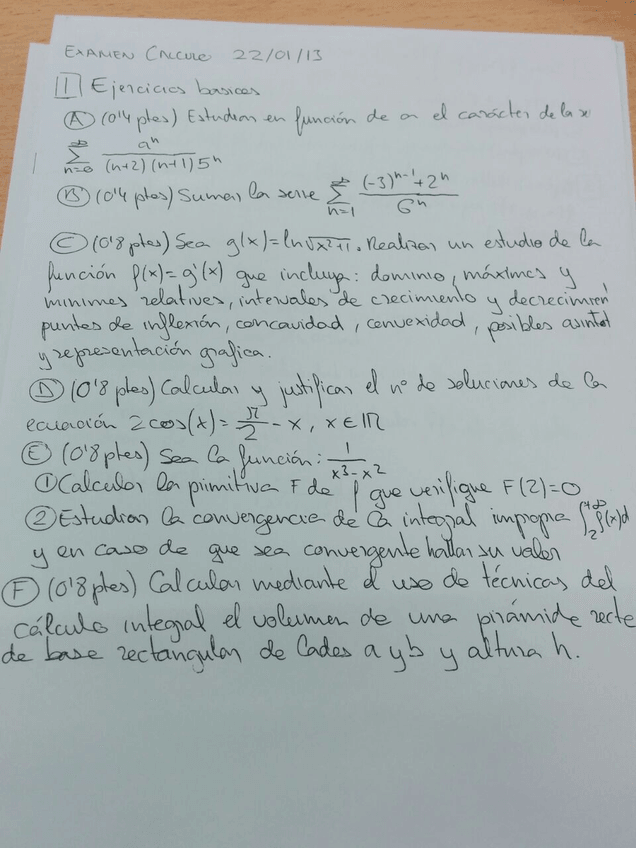 EXAMEN CALCULO 22/01/13
1 Ejercicios basicos
A (0'4 ptos) Estudiar en función de a el carácter de la
∑_{n=0}^{∞} a^n / ((n+2)(n+1)5^n)
B (0'4 ptos) Sumar la serie ∑_{n=1}^{∞} ((-3)^{n-1}+2^n) / 6^n
C (0'8 ptos) Sea g(x)=ln√(x²+1). Realizar un estudio de la
función f(x)=g'(x) que incluya: dominio, máximos y
mínimos relativos, intervalos de crecimiento y decrecimien
puntos de inflexión, concavidad, convexidad, posibles asíntot
y representación grafica.
D (0'8 ptos) Calcular y justificar el nº de soluciones de la
ecuación 2cos(x)=π/2-x, x∈ℝ
E (0'8 ptos) Sea la función: 1/(x³-x²)
① Calcular la primitiva F de f que verifique F(2)=0
② Estudiar la convergencia de la integral impropia ∫_2^{+∞} f(x)d
y en caso de que sea convergente hallar su valor
F (0'8 ptos) Calcular mediante el uso de técnicas del
cálculo integral el volumen de una pirámide recte
de base rectangular de lados a y b y altura h.